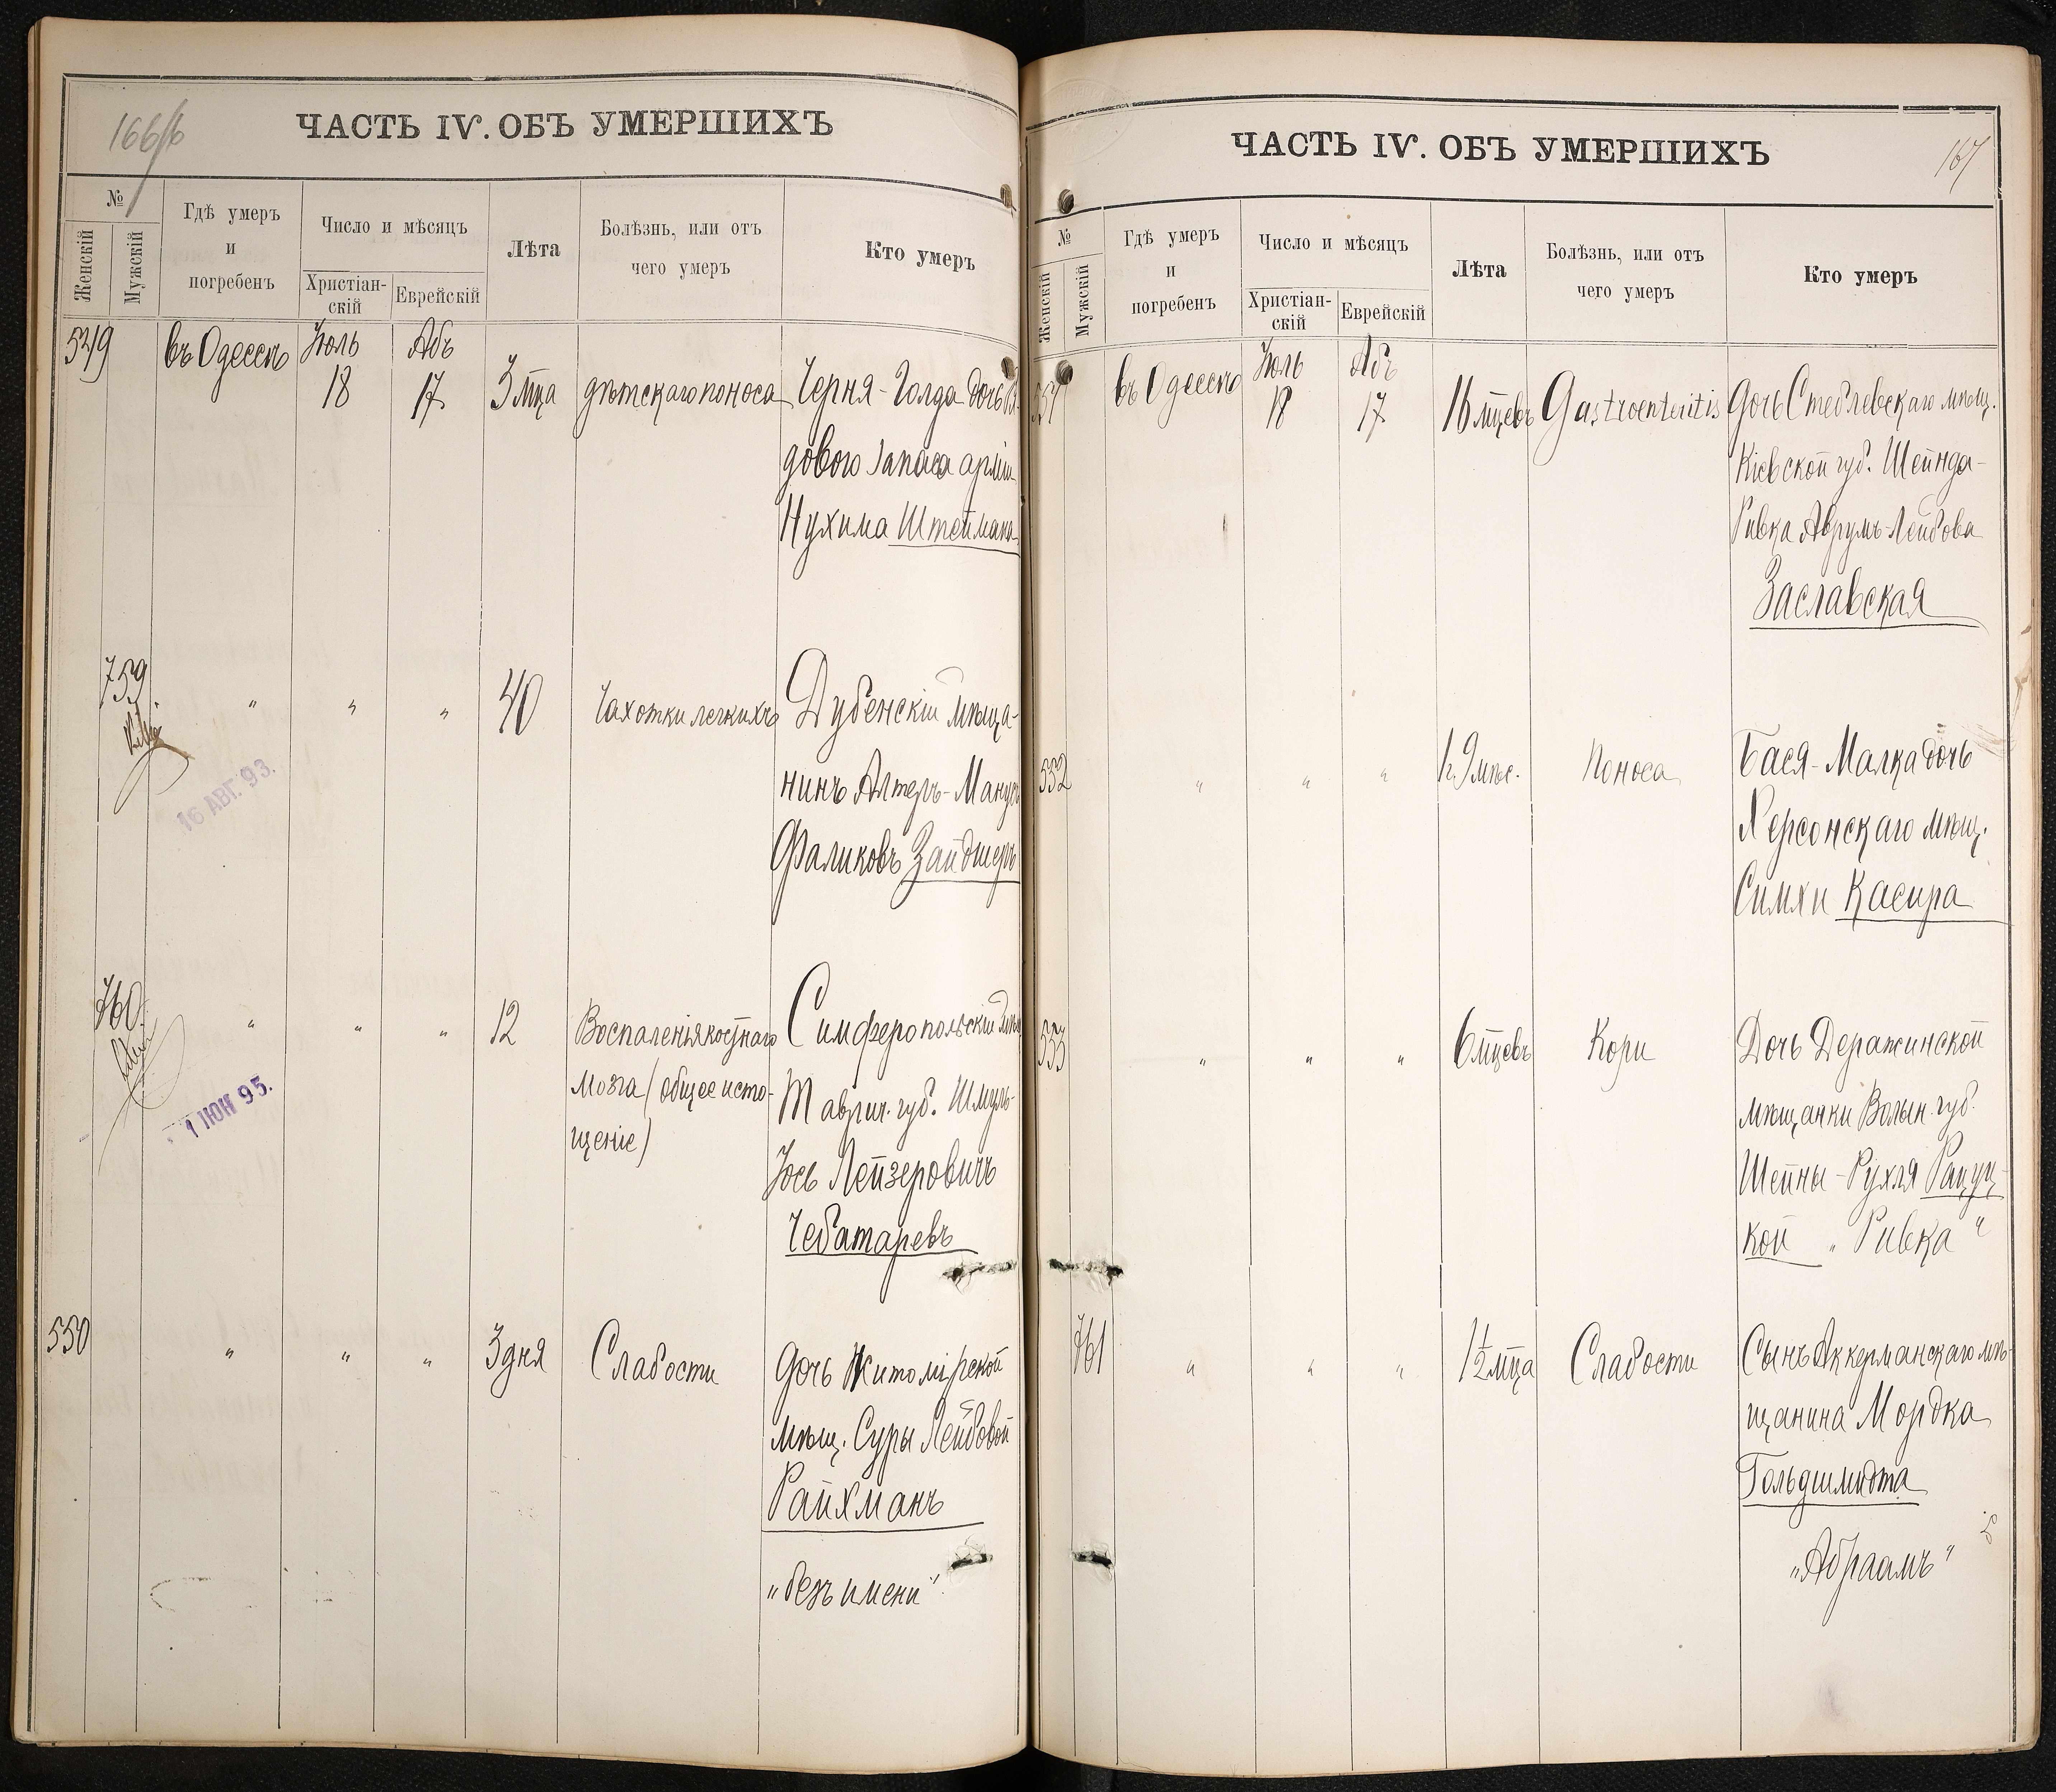 166/б
ЧАСТЬ IV. ОБЪ УМЕРШИХЪ
№
Женскій
Мужскій
Гдѣ умеръ
и
погребенъ
Число и мѣсяцъ
Христіан-
скій
Еврейскій
Лѣта
Болѣзнь, или отъ
чего умеръ
Кто умеръ
549 въ Одессѣ Іюль 18 Абъ 17 3 мца дѣтскаго поноса Черня-Голда дочь Ря-
дового запаса арміи
Нухима Штеймана
759 " " " 40 Чахотки легкихъ Дубенскій мѣща-
нинъ Алтеръ-Манусъ
Фаликовъ Зайдшеръ
16 АВГ. 93.
760 " " " 12 Воспаленія костнаго Симферопольскій мѣщ.
мозга (общее исто- Таврич. губ. Шмуль-
щеніе) Іось Лейзеровичъ
Чебатаревъ
1 ІЮН 95.
550 " " " 3 дня Слабости Дочь Житомірской
мѣщ. Суры Лейбовой
Райхманъ
„безъ имени"
167
ЧАСТЬ IV. ОБЪ УМЕРШИХЪ
№
Женскій
Мужскій
Гдѣ умеръ
и
погребенъ
Число и мѣсяцъ
Христіан-
скій
Еврейскій
Лѣта
Болѣзнь, или отъ
чего умеръ
Кто умеръ
551 въ Одессѣ Іюль 18 Абъ 17 16 мцевъ Gastroenteritis Дочь Стеблевскаго мѣщ.
Кіевской губ. Шейнда-
Ривка Аврумъ-Лейбова
Заславская
552 " " " 1 г. 9 мѣс. Поноса Бася-Малка дочь
Херсонскаго мѣщ.
Симхи Касира
553 " " " 6 мцевъ Кори Дочь Деражинской
мѣщанки Волын. губ.
Шейны-Рухля Рапуц-
кой „Ривка"
761 " " " 1 1/2 мца Слабости Сынъ Аккерманскаго мѣ-
щанина Мордка
Гольдшмидта
„Абраамъ"